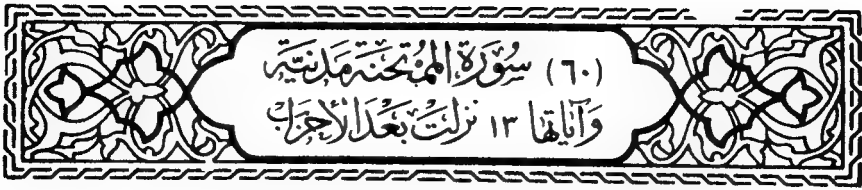 (٦٠) سُورَةُ المُمْتَحَنَة مَدَنِيَّة
وَآيَاتُهَا ١٣ نَزَلَتْ بَعْدَ الأَحْزَابِ